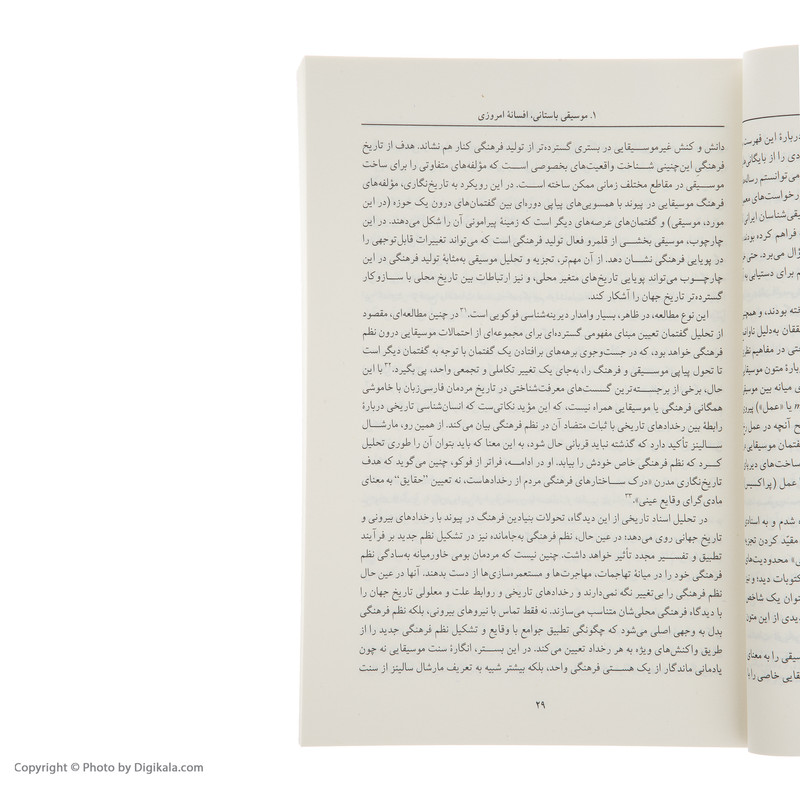 ۱. موسیقی باستانی، افسانهٔ امروزی
دانش و کنش غیرموسیقایی در بستری گسترده‌تر از تولید فرهنگی کنار هم نشاند. هدف از تاریخ
فرهنگیِ این‌چنینی شناخت واقعیت‌های بخصوصی است که مؤلفه‌های متفاوتی را برای ساخت
موسیقی در مقاطع مختلف زمانی ممکن ساخته است. در این رویکرد به تاریخ‌نگاری، مؤلفه‌های
فرهنگ موسیقایی در پیوند با همسویی‌های پیاپی دوره‌ای بین گفتمان‌های درون یک حوزه (در این
مورد، موسیقی) و گفتمان‌های عرصه‌های دیگر است که زمینهٔ پیرامونی آن را شکل می‌دهند. در این
چارچوب، موسیقی بخشی از قلمرو فعال تولید فرهنگی است که می‌تواند تغییرات قابل‌توجهی را
در پویایی فرهنگی نشان دهد. از آن مهم‌تر، تجزیه و تحلیل موسیقی به‌مثابهٔ تولید فرهنگی در این
چارچوب می‌تواند پویایی تاریخ‌های متغیر محلی، و نیز ارتباطات بین تاریخ محلی با سازوکار
گسترده‌تر تاریخ جهان را آشکار کند.
این نوع مطالعه، در ظاهر، بسیار وامدار دیرینه‌شناسی فوکویی است.۲۱ در چنین مطالعه‌ای، مقصود
از تحلیل گفتمان تعیین مبنای مفهومی گسترده‌ای برای مجموعه‌ای از احتمالات موسیقایی درون نظم
فرهنگی خواهد بود، که در جست‌وجوی برهه‌های برافتادن یک گفتمان با توجه به گفتمان دیگر است
تا تحول پیاپی موسیقی و فرهنگ را، به‌جای یک تغییر تکاملی و تجمعی واحد، پی بگیرد.۲۲ با این
حال، برخی از برجسته‌ترین گسست‌های معرفت‌شناختی در تاریخ مردمان فارسی‌زبان با خاموشی
همگانی فرهنگی یا موسیقایی همراه نیست، که این مؤید نکاتی‌ست که انسان‌شناسی تاریخی دربارهٔ
رابطهٔ بین رخدادهای تاریخی با ثبات متضاد آن در نظم فرهنگی بیان می‌کند. از همین رو، مارشال
سالینز تأکید دارد که گذشته نباید قربانی حال شود، به این معنا که باید بتوان آن را طوری تحلیل
کرد که نظم فرهنگی خاص خودش را بیابد. او در ادامه، فراتر از فوکو، چنین می‌گوید که هدف
تاریخ‌نگاری مدرن «درک ساختارهای فرهنگی مردم از رخدادهاست، نه تعیین "حقایق" به معنای
مادی‌گرای وقایع عینی».۲۳
در تحلیل اسناد تاریخی از این دیدگاه، تحولات بنیادین فرهنگ در پیوند با رخدادهای بیرونی و
تاریخ جهانی روی می‌دهد؛ در عین حال، نظم فرهنگی به‌جامانده نیز در تشکیل نظم جدید بر فرآیند
تطبیق و تفسیر مجدد تأثیر خواهد داشت. چنین نیست که مردمان بومی خاورمیانه به‌سادگی نظم
فرهنگی خود را در میانهٔ تهاجمات، مهاجرت‌ها و مستعمره‌سازی‌ها از دست بدهند. آنها در عین حال
نظم فرهنگی را بی‌تغییر نگه نمی‌دارند و رخدادهای تاریخی و روابط علت و معلولی تاریخ جهان را
با دیدگاه فرهنگی محلی‌شان متناسب می‌سازند. نه فقط تماس با نیروهای بیرونی، بلکه نظم فرهنگی
بدل به وجهی اصلی می‌شود که چگونگی تطبیق جوامع با وقایع و تشکیل نظم فرهنگی جدید را از
طریق واکنش‌های ویژه به هر رخداد تعیین می‌کند. در این بستر، انگارهٔ سنت موسیقایی نه چون
یادمانی ماندگار از یک هستی فرهنگی واحد، بلکه بیشتر شبیه به تعریف مارشال سالینز از سنت
۲۹
Copyright © Photo by Digikala.com